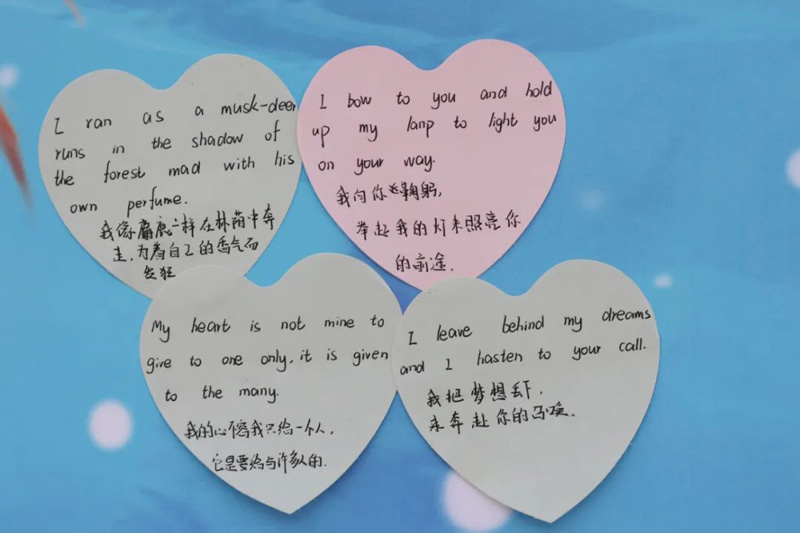 I ran as a musk-deer
runs in the shadow of
the forest mad with his
own perfume.
我像麝鹿一样在林荫中奔
走,为着自己的香气而
发狂
I bow to you and hold
up my lamp to light you
on your way.
我向你鞠躬,
举起我的灯来照亮你
的前途.
My heart is not mine to
give to one only, it is given
to the many.
我的心不只给一个人,
它是要给与许多人的.
I leave behind my dreams
and I hasten to your call.
我把梦想丢下,
来奔赴你的召唤.